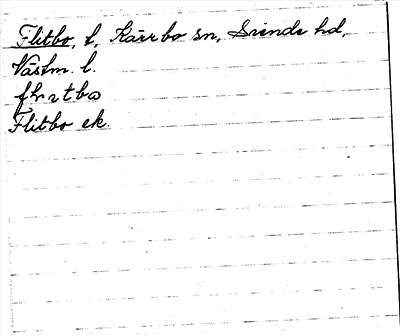 Flitbo, b, Kärrbo sn, Siende hd,
Västm. l.
flitbo
Flitbo ek.